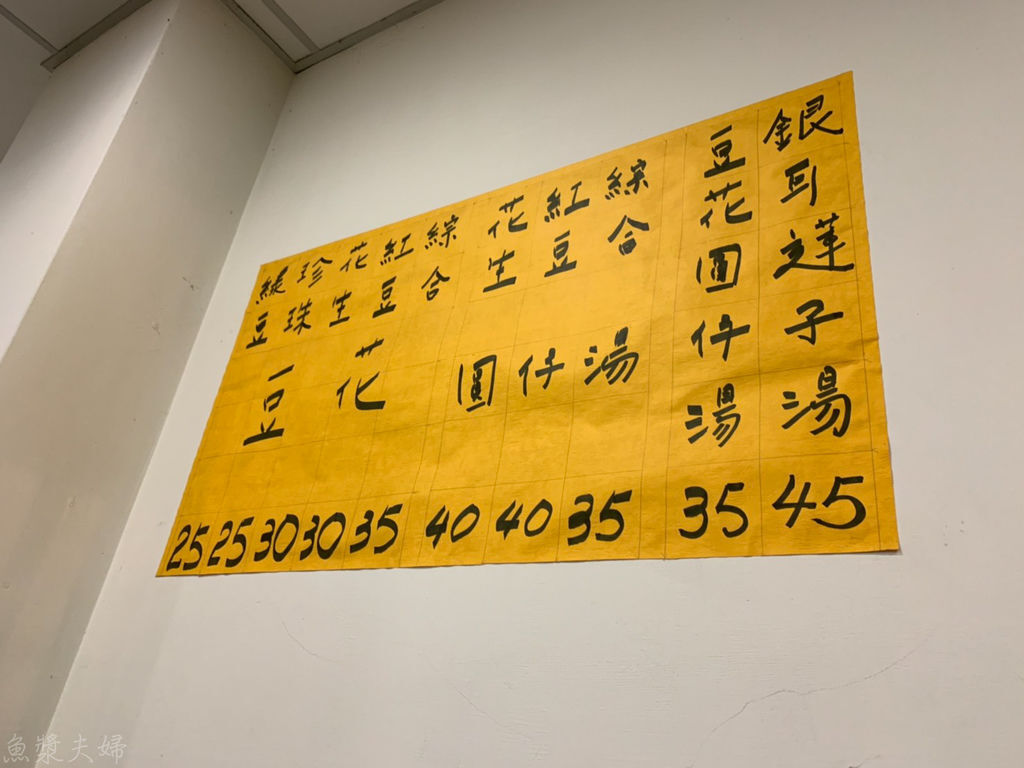 綠豆
珍珠
花生
紅豆
綜合
豆花
25 25 30 30 35
花生
紅豆
綜合
圓仔湯
40 40 35
豆花圓仔湯
35
銀耳蓮子湯
45
魚漿夫婦